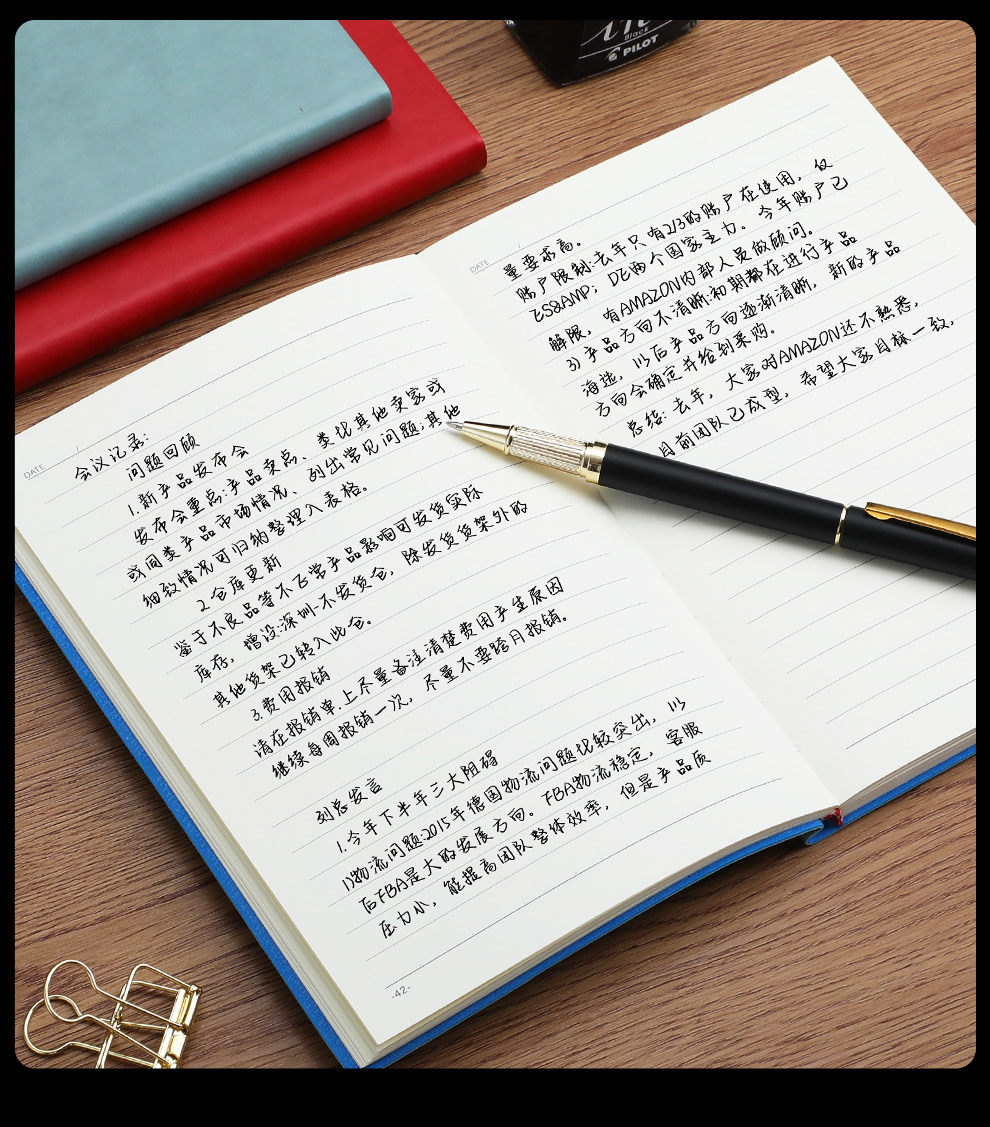 Black
PILOT
DATE
会议记录:
问题回顾
1.新产品发布会
发布会重点:产品卖点、类比其他卖家或
或同类产品市场情况、列出常见问题;其他
细致情况可归纳整理入表格。
2.仓库更新
鉴于不良品等不正常产品影响可发货实际
库存,增设:深圳-不发货仓,除发货货架外的
其他货架已转入此仓。
3.费用报销
请在报销单上尽量备注清楚费用产生原因
继续每周报销一次,尽量不要跨月报销。
刘总发言
1.今年下半年三大阻碍
1)物流问题:2015年德国物流问题比较突出,以
后FBA是大的发展方向。FBA物流稳定,客服
压力小,能提高团队整体效率,但是产品质
-42-
DATE
量要求高。
账户限制:去年只有2/3的账户在使用,仅
ES&AMP; DE两个国家主力。今年账户已
解限,有AMAZON内部人员做顾问。
3)产品方向不清晰:初期都在进行产品
海选,以后产品方向逐渐清晰,新的产品
方向会确定并给到采购。
总结:去年,大家对AMAZON还不熟悉,
目前团队已成型,希望大家目标一致,